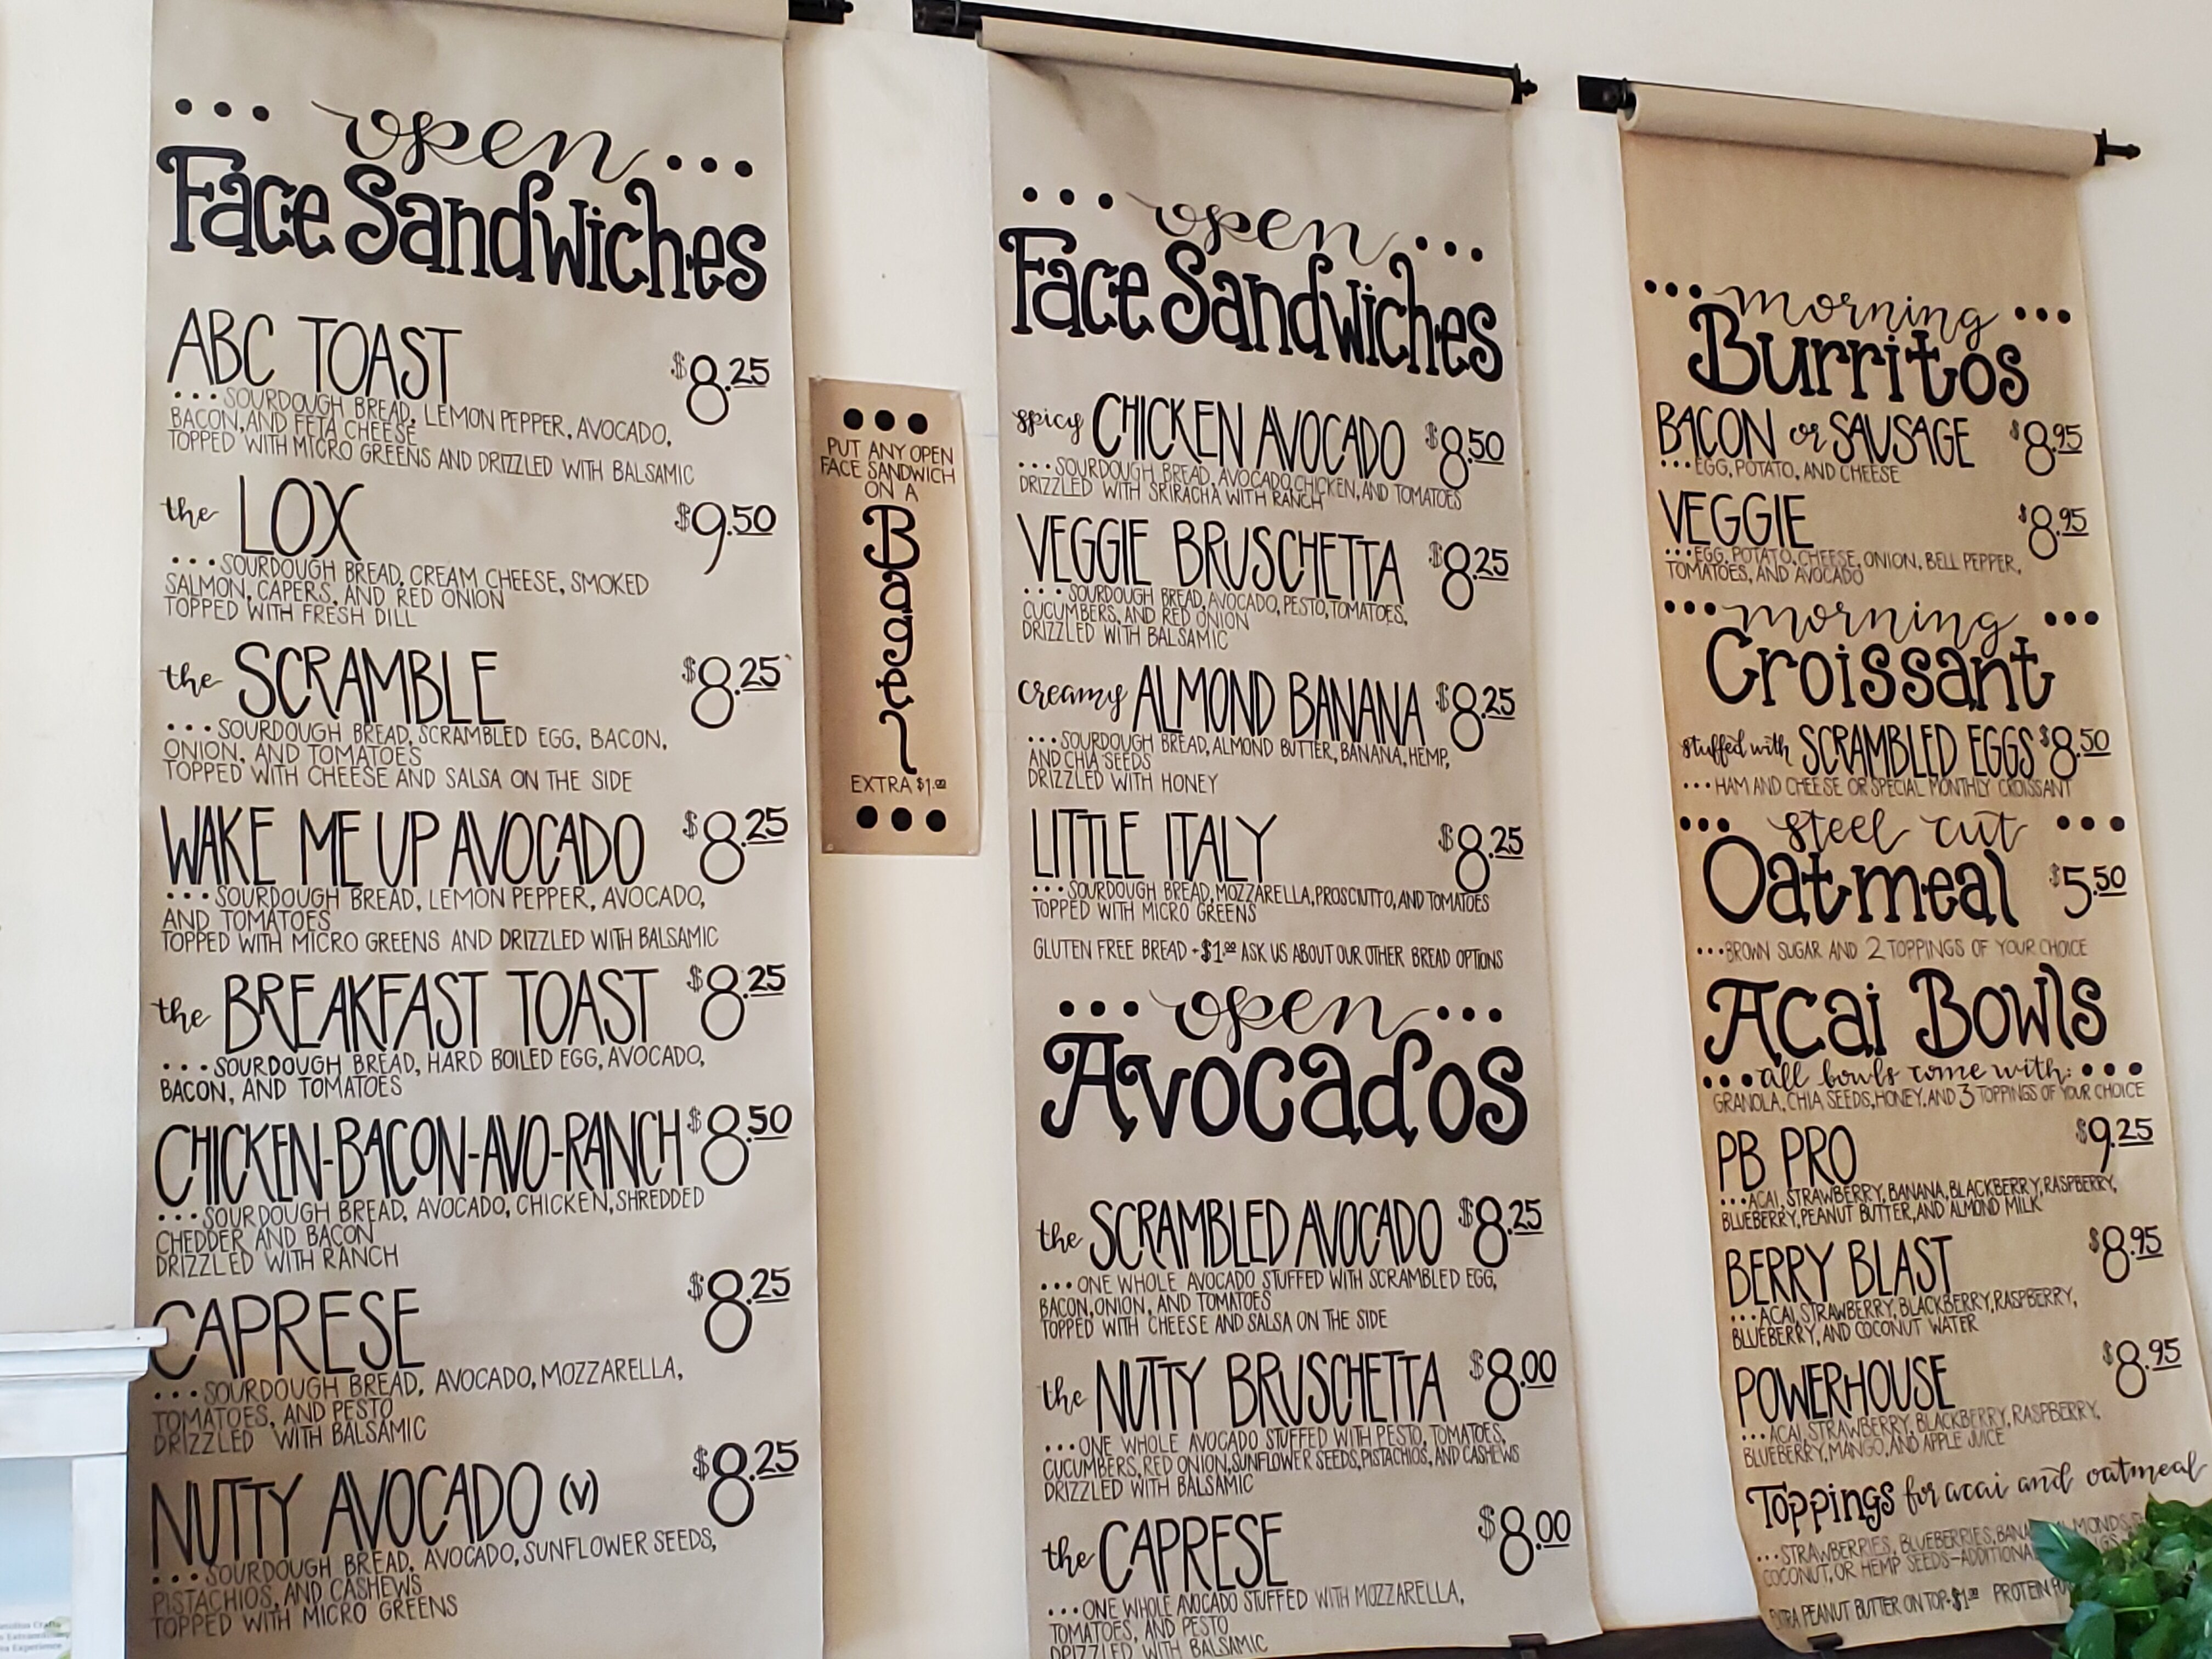 open
Face Sandwiches
ABC TOAST $8.25
...SOURDOUGH BREAD, LEMON PEPPER, AVOCADO,
BACON, AND FETA CHEESE
TOPPED WITH MICRO GREENS AND DRIZZLED WITH BALSAMIC
the LOX $9.50
...SOURDOUGH BREAD, CREAM CHEESE, SMOKED
SALMON, CAPERS, AND RED ONION
TOPPED WITH FRESH DILL
the SCRAMBLE $8.25
...SOURDOUGH BREAD, SCRAMBLED EGG, BACON,
ONION, AND TOMATOES
TOPPED WITH CHEESE AND SALSA ON THE SIDE
WAKE ME UP AVOCADO $8.25
...SOURDOUGH BREAD, LEMON PEPPER, AVOCADO,
AND TOMATOES
TOPPED WITH MICRO GREENS AND DRIZZLED WITH BALSAMIC
the BREAKFAST TOAST $8.25
...SOURDOUGH BREAD, HARD BOILED EGG, AVOCADO,
BACON, AND TOMATOES
CHICKEN-BACON-AVO-RANCH $8.50
...SOURDOUGH BREAD, AVOCADO, CHICKEN, SHREDDED
CHEDDER AND BACON
DRIZZLED WITH RANCH
CAPRESE $8.25
...SOURDOUGH BREAD, AVOCADO, MOZZARELLA,
TOMATOES, AND PESTO
DRIZZLED WITH BALSAMIC
NUTTY AVOCADO (V) $8.25
...SOURDOUGH BREAD, AVOCADO, SUNFLOWER SEEDS,
PISTACHIOS, AND CASHEWS
TOPPED WITH MICRO GREENS
PUT ANY OPEN
FACE SANDWICH
ON A
Bagel
EXTRA $1.00
open
Face Sandwiches
spicy CHICKEN AVOCADO $8.50
...SOURDOUGH BREAD, AVOCADO, CHICKEN, AND TOMATOES
DRIZZLED WITH SRIRACHA WITH RANCH
VEGGIE BRUSCHETTA $8.25
...SOURDOUGH BREAD, AVOCADO, PESTO, TOMATOES,
CUCUMBERS, AND RED ONION
DRIZZLED WITH BALSAMIC
creamy ALMOND BANANA $8.25
...SOURDOUGH BREAD, ALMOND BUTTER, BANANA, HEMP,
AND CHIA SEEDS
DRIZZLED WITH HONEY
LITTLE ITALY $8.25
...SOURDOUGH BREAD, MOZZARELLA, PROSCIUTTO, AND TOMATOES
TOPPED WITH MICRO GREENS
GLUTEN FREE BREAD +$1.00 ASK US ABOUT OUR OTHER BREAD OPTIONS
open
Avocados
the SCRAMBLED AVOCADO $8.25
...ONE WHOLE AVOCADO STUFFED WITH SCRAMBLED EGG,
BACON, ONION, AND TOMATOES
TOPPED WITH CHEESE AND SALSA ON THE SIDE
the NUTTY BRUSCHETTA $8.00
...ONE WHOLE AVOCADO STUFFED WITH PESTO, TOMATOES,
CUCUMBERS, RED ONION, SUNFLOWER SEEDS, PISTACHIOS, AND CASHEWS
DRIZZLED WITH BALSAMIC
the CAPRESE $8.00
...ONE WHOLE AVOCADO STUFFED WITH MOZZARELLA,
TOMATOES, AND PESTO
DRIZZLED WITH BALSAMIC
morning
Burritos
BACON or SAUSAGE $8.95
...EGG, POTATO, AND CHEESE
VEGGIE $8.95
...EGG, POTATO, CHEESE, ONION, BELL PEPPER,
TOMATOES, AND AVOCADO
morning
Croissant
stuffed with SCRAMBLED EGGS $8.50
...HAM AND CHEESE OR SPECIAL MONTHLY CROISSANT
steel cut
Oatmeal $5.50
...BROWN SUGAR AND 2 TOPPINGS OF YOUR CHOICE
Acai Bowls
...all bowls come with:...
GRANOLA, CHIA SEEDS, HONEY, AND 3 TOPPINGS OF YOUR CHOICE
PB PRO $9.25
...ACAI, STRAWBERRY, BANANA, BLACKBERRY, RASPBERRY,
BLUEBERRY, PEANUT BUTTER, AND ALMOND MILK
BERRY BLAST $8.95
...ACAI, STRAWBERRY, BLACKBERRY, RASPBERRY,
BLUEBERRY, AND COCONUT WATER
POWERHOUSE $8.95
...ACAI, STRAWBERRY, BLACKBERRY, RASPBERRY,
BLUEBERRY, MANGO, AND APPLE JUICE
Toppings for acai and oatmeal
...STRAWBERRIES, BLUEBERRIES,
COCONUT, OR HEMP SEEDS-ADDITIONAL
EXTRA PEANUT BUTTER ON TOP+$1.00 PROTEIN